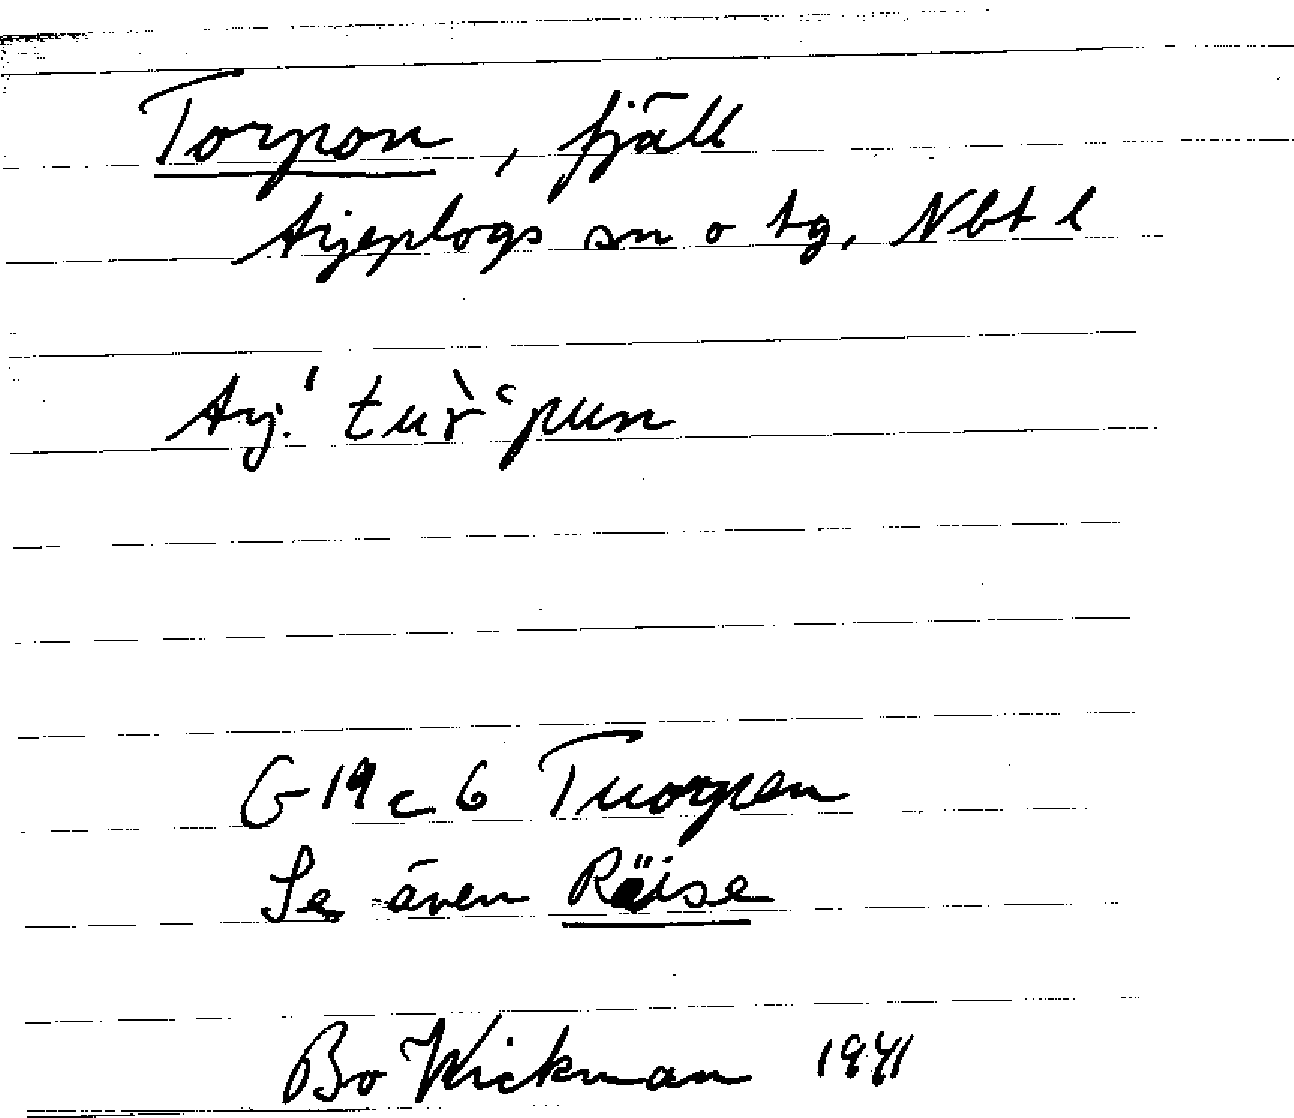 Torpon, fjäll
Arjeplogs sn o tg, Nbt l
Arj. ˈtur̀ʿpun
G 19 c 6 Tuorpon
Se även Räise
Bo Wickman 1941